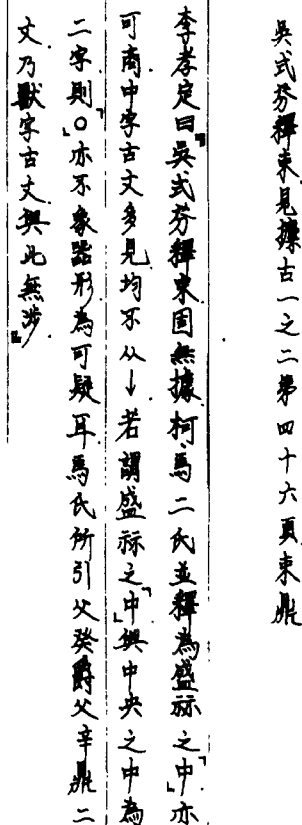 吳式芬釋朿見攈古一之二第四十六頁朿鼎
李孝定曰「吳式芬釋朿固無據柯、馬二氏並釋為盛祘之「中」亦
可商中字古文多見均不从↓若謂盛祘之「中」與中央之中為
二字則「○」亦不象器形為可疑耳馬氏所引父癸爵父辛鼎二
文乃獸字古文與此無涉」